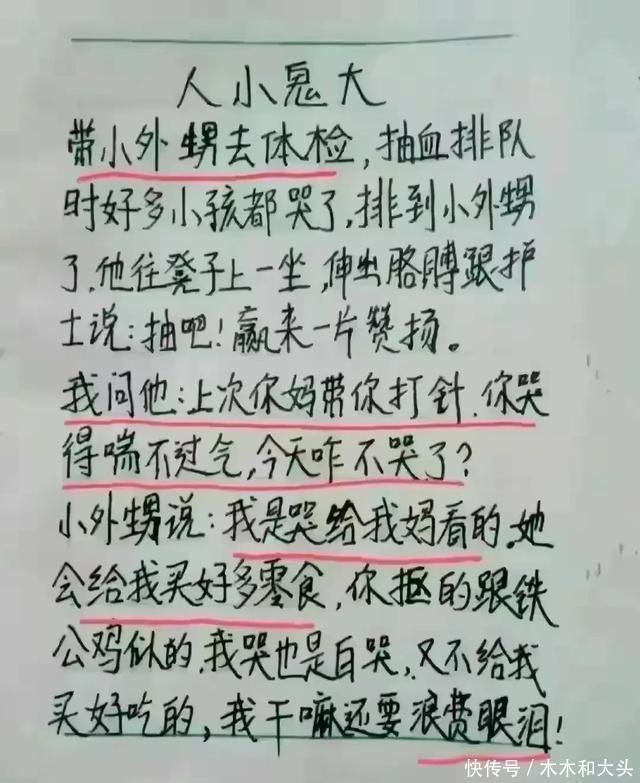 人小鬼大
带小外甥去体检，抽血排队
时好多小孩都哭了，排到小外甥
了，他往凳子上一坐，伸出胳膊跟护
士说：抽吧！赢来一片赞扬。
我问他：上次你妈带你打针，你哭
得喘不过气，今天咋不哭了？
小外甥说：我是哭给我妈看的，她
会给我买好多零食，你抠的跟铁
公鸡似的，我哭也是白哭，又不给我
买好吃的，我干嘛还要浪费眼泪！
快传号／木木和大头